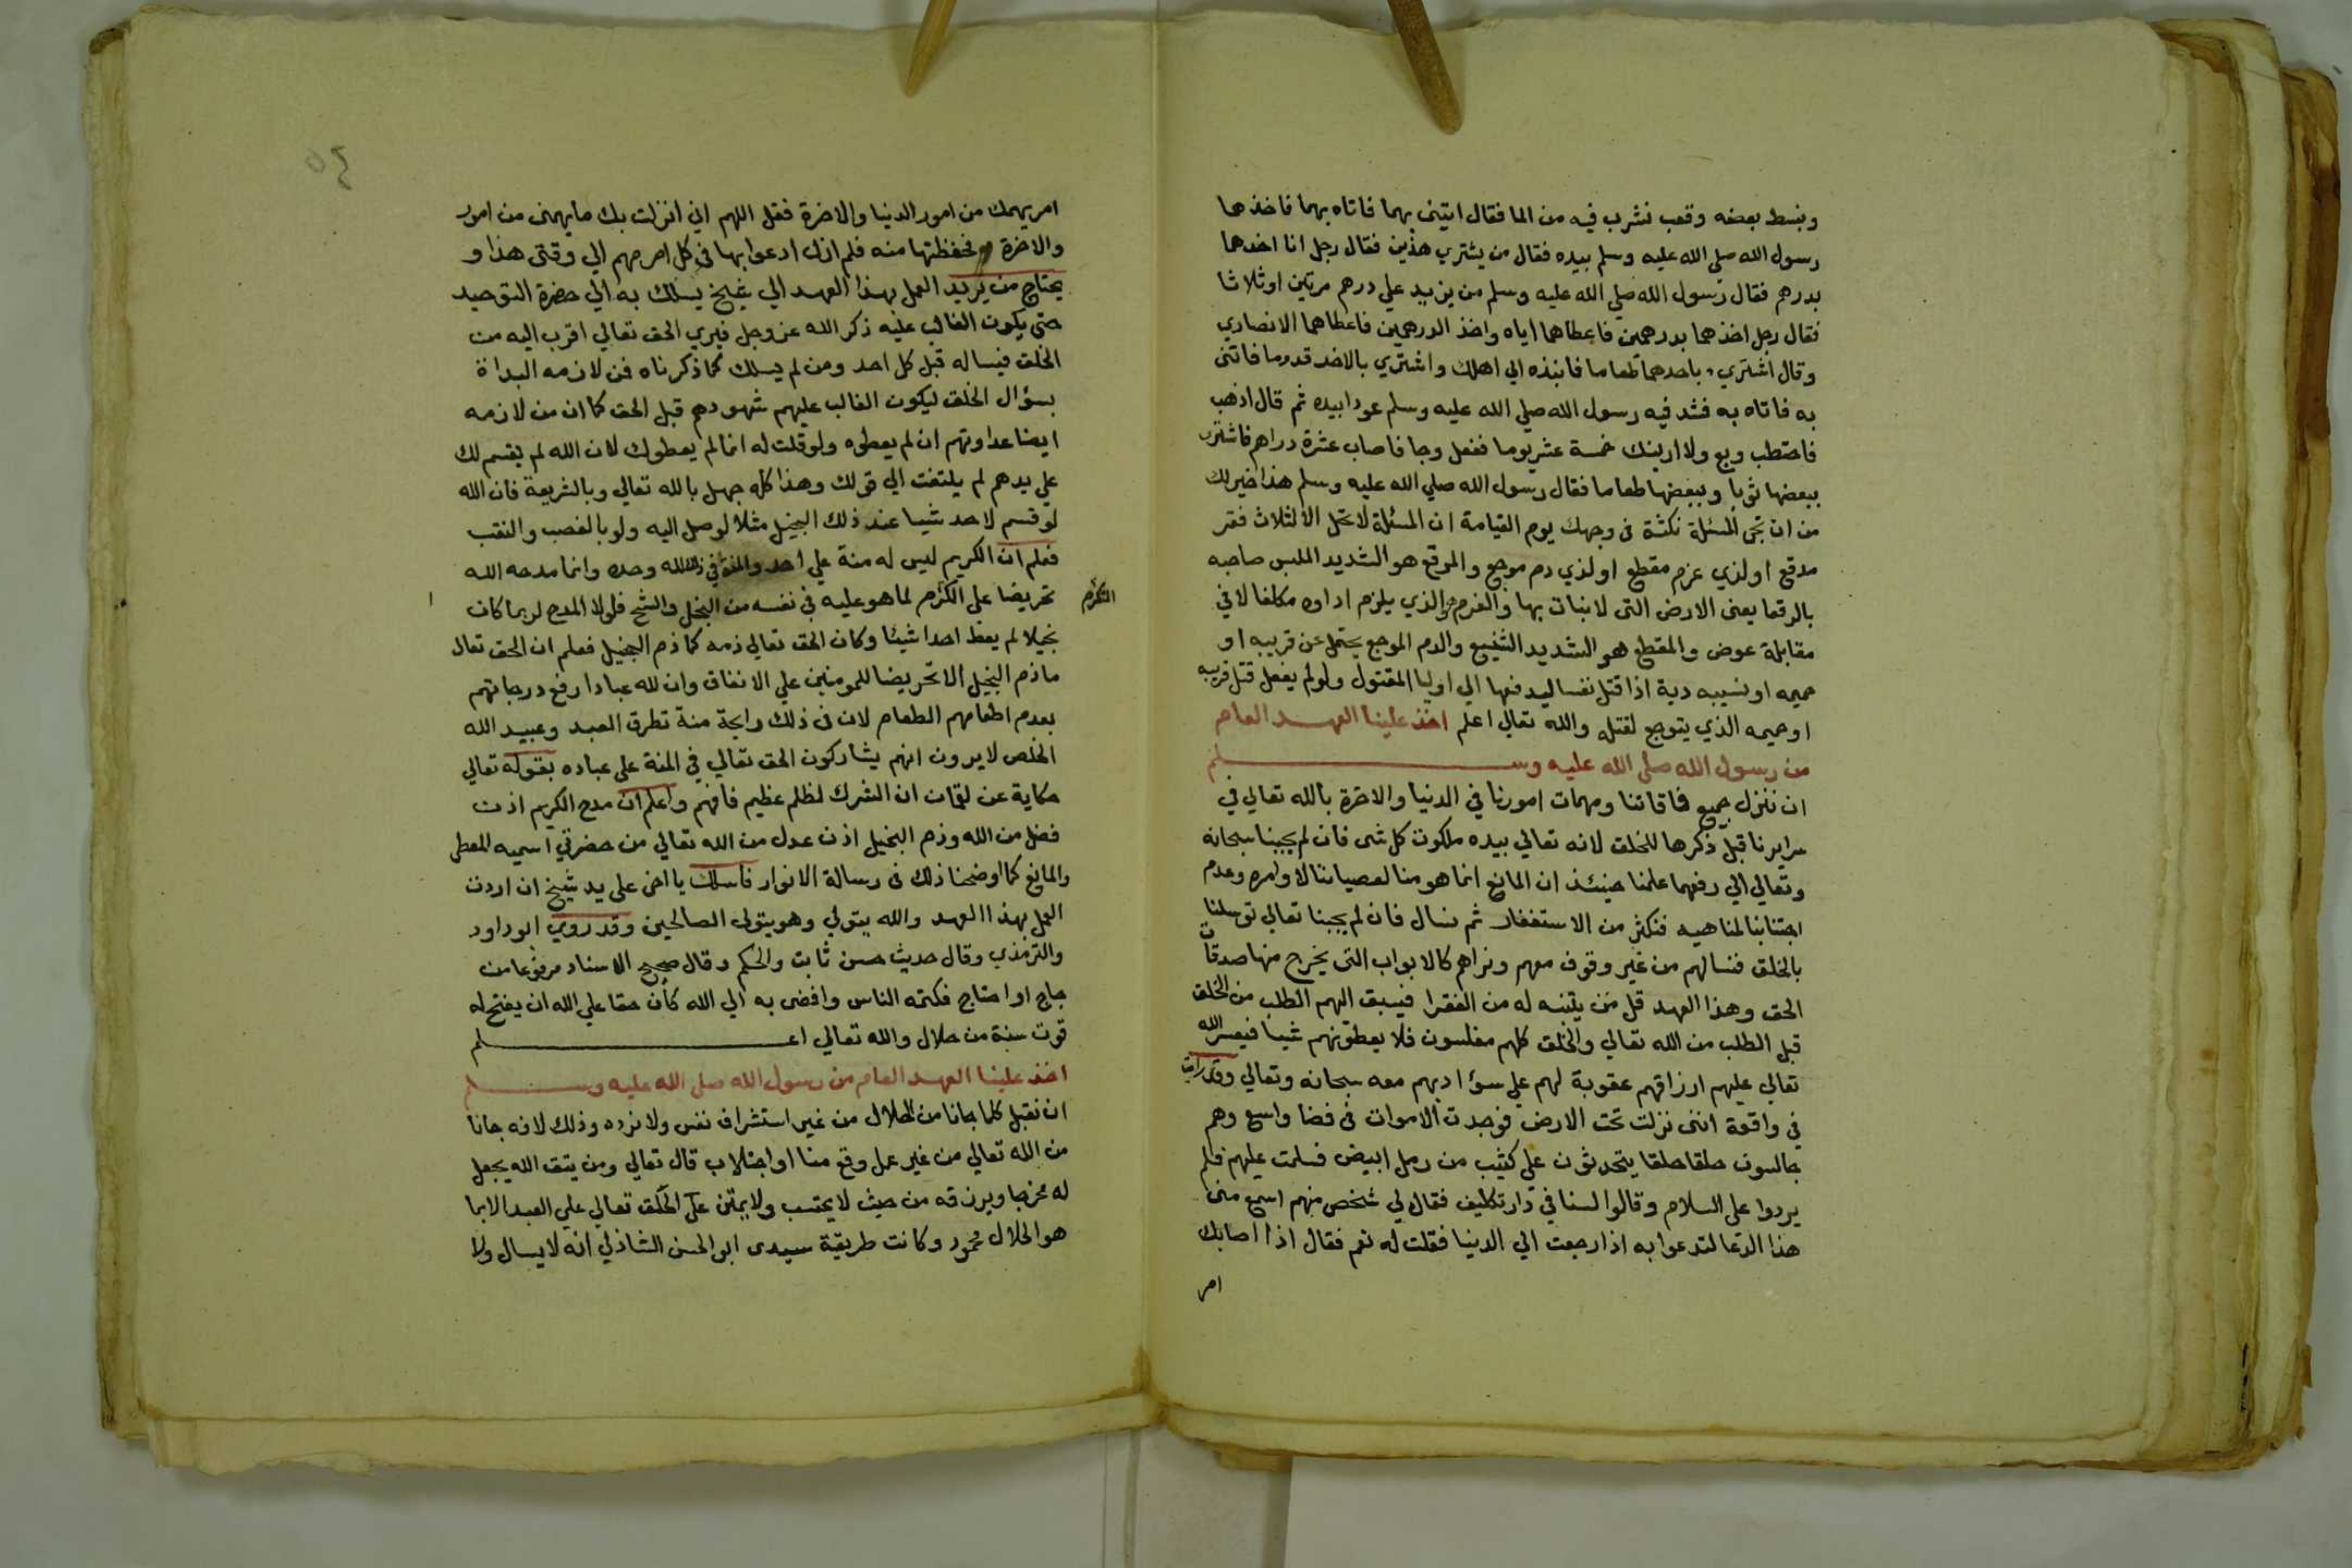 ونبسط بعضه وقعب نشرب فيه من الما فقال ايتنى بهما فاتاه بهما فاخذهما
رسول الله صلى الله عليه وسلم بيده فقال من يشتري هذين فقال رجل انا اخذهما
بدرهم فقال رسول الله صلي الله عليه وسلم من يزيد علي درهم مرتين اوثلاثا
فقال رجل اخذهما بدرهمين فاعطاهما اياه واخذ الدرهمين فاعطاهما الانصاري
وقال اشتري باحدهما طعاما فانبذه الي اهلك واشتري بالاخر قدوما فاتنى
به فاتاه به فشد فيه رسول الله صلي الله عليه وسلم عودا بيده ثم قال اذهب
فاحتطب وبع ولا ارينك خمسة عشر يوما ففعل وجا فاصاب عشرة دراهم فاشترى
ببعضها ثوبا وببعضها طعاما فقال رسول الله صلي الله عليه وسلم هذا خير لك
من ان تجى المسئلة نكتة فى وجهك يوم القيامة ان المسئلة لا تحل الا لثلاث فقر
مدقع اولذي غرم مفظع او لذي دم موجع والموقع هو الشديد الملبس صاحبه
بالدقعا يعنى الارض التى لا نبات بها والغرم والذي يلزم اداوه مكلفا لا في
مقابلة عوض والمفظع هو الشديد الشنيع والدم الموجع يحتمل عن قريبه او
حميمه او نسيبه دية اذا قتل نفسا ليدفعها الي اوليا المقتول ولو لم يفعل قتل قريبه
او حميمه الذي يتوجع لقتله والله تعالي اعلم اخذ علينا العهد العام
من رسول الله صلى الله عليه وسلم
ان ننزل جميع فاقاتنا ومهمات امورنا في الدنيا والاخرة بالله تعالي في
سرايرنا قبل ذكرها للخلق لانه تعالي بيده ملكوت كل شى فان لم يجبنا سبحانه
وتعالي الي رفعها علمنا حينئذ ان المانع انما هو منا لعصياننا لاوامره وعدم
اجتنابنا لمناهيه فنكثر من الاستغفار ثم نسال فان لم يجبنا تعالي توسلنا
بالخلق فنسالهم من غير وقوف معهم ونراهم كالابواب التى يخرج منها صدقات
الحق وهذا العهد قل من يتنبه له من الفقرا فيسبق الهم الطلب من الخلق
قبل الطلب من الله تعالي والخلق كلهم مفلسون فلا يعطونهم شيا فيعسر الله
تعالي عليهم ارزاقهم عقوبة لهم علي سؤ ادبهم معه سبحانه وتعالي وقد رايت
في واقعة اننى نزلت تحت الارض فوجدت الاموات فى فضا واسع وهم
جالسون حلقا حلقا يتحدثون علي كثيب من رمل ابيض فسلمت عليهم فلم
يردوا على السلام وقالوا لسنا في دار تكليف فقال لي شخص منهم اسمع منى
هذا الدعا لتدعوا به اذا رجعت الي الدنيا فقلت له نعم فقال اذا اصابك
امر
٥٤
امر يهمك من امور الدنيا والاخرة فقل اللهم اني انزلت بك ما يهمنى من امور
والاخرة فحفظتها منه فلم ازل ادعوا بها في كل امر مهم الي وقتى هذا و
يحتاج من يريد العمل بهذا العهد الي شيخ يسلك به الي حضرة التوحيد
حتى يكون الغالب عليه ذكر الله عز وجل فيري الحق تعالي اقرب اليه من
الخلق فيساله قبل كل احد ومن لم يسلك كما ذكرناه فمن لازمه البداة
بسؤال الخلق ليكون الغالب عليهم شهودهم قبل الحق كما ان من لازمه
ايضا عداوتهم ان لم يعطوه ولو قلت له انما لم يعطوك لان الله لم يقسم لك
علي يدهم لم يلتفت الي قولك وهذا كله جهل بالله تعالي وبالشريعة فان الله
لو قسم لاحد شيا عند ذلك البخيل مثلا لوصل اليه ولو بالغصب والنقب
فعلم ان الكريم ليس له منة علي احد والمنة في ذلك لله وحده وانما مدحه الله
تحريضا على الكرم لما هو عليه فى نفسه من البخل والشح فلولا المدح لربما كان
التكرم
بخيلا لم يعط احدا شيئا وكان الحق تعالي ذمه كما ذم البخيل فعلم ان الحق تعالى
ما ذم البخيل الا تحريضا للمومنين علي الانفاق وان لله عبادا رفع درجاتهم
بعدم اطعامهم الطعام لان فى ذلك رايحة منة تطرق العبد وعبيد الله
الخلص لا يرون انهم يشاركون الحق تعالي في المنة على عباده بقوله تعالي
حكاية عن لقمان ان الشرك لظلم عظيم فافهم واعلم ان مدح الكريم اذن
فضل من الله وذم البخيل اذن عدل من الله تعالي من حضرتي اسميه المعطى
والمانع كما اوضحنا ذلك فى رسالة الانوار فاسلك يا اخى على يد شيخ ان اردت
العمل بهذا العهد والله يتولي وهو يتولى الصالحين وقد روي ابو داود
والترمذي وقال حديث حسن ثابت والحكم وقال صحيح الاسناد مرفوعا من
جاع او احتاج فكتمه الناس وافضى به الي الله كان حقا علي الله ان يفتح له
قوت سنة من حلال والله تعالي اعلم
اخذ علينا العهد العام من رسول الله صلى الله عليه وسلم
ان نقبل كلما جانا من الحلال من غير استشراف نفس ولا نرده وذلك لانه جانا
من الله تعالي من غير عمل وقع منا او اجتلاب قال تعالي ومن يتق الله يجعل
له مخرجا ويرزقه من حيث لا يحتسب ولا يمتن الحق تعالي علي العبد الا بما
هو الحلال محمود وكانت طريقة سيدى ابو الحسن الشاذلي انه لا يسال ولا